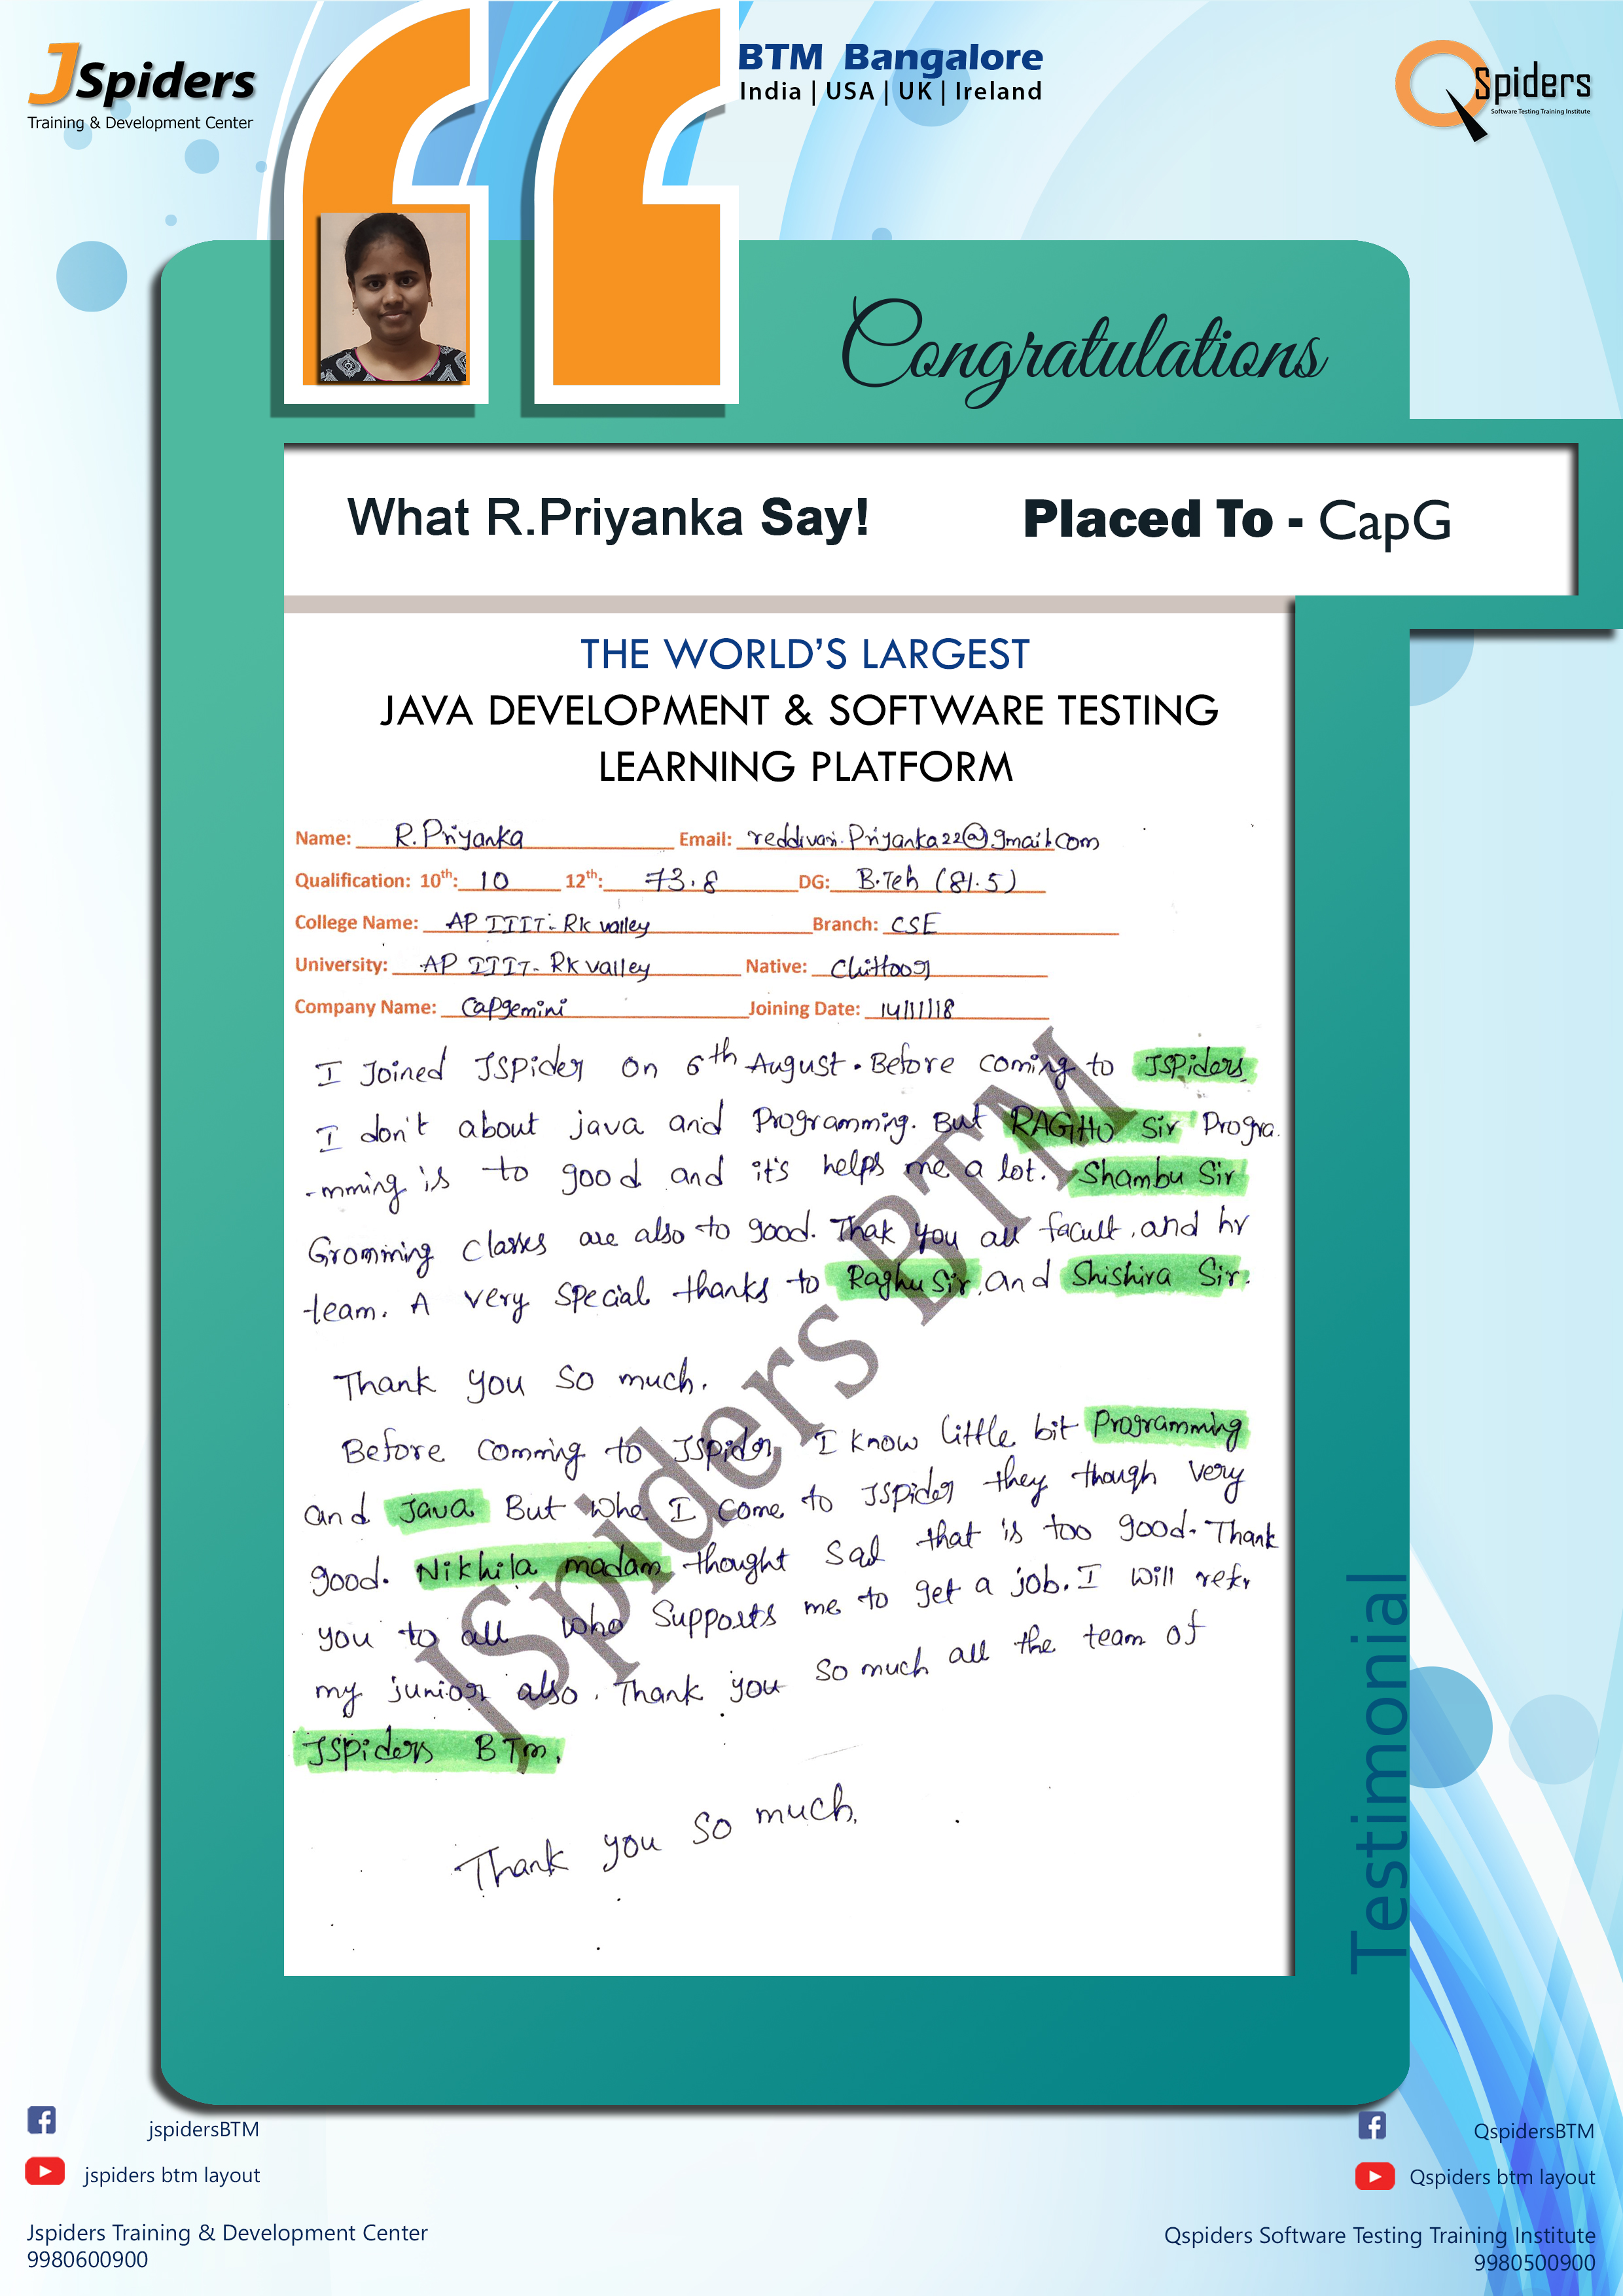 JSpiders
Training & Development Center
BTM Bangalore
India | USA | UK | Ireland
QSpiders
Software Testing Training Institute
Congratulations
What R.Priyanka Say!
Placed To - CapG
THE WORLD'S LARGEST
JAVA DEVELOPMENT & SOFTWARE TESTING
LEARNING PLATFORM
Name: R.Priyanka Email: reddivari.Priyanka22@gmail.com
Qualification: 10th: 10 12th: 73.8 DG: B.Teh (81.5)
College Name: AP IIIT- Rk valley Branch: CSE
University: AP IIIT- Rk valley Native: Chittoor
Company Name: Capgemini Joining Date: 14/11/18
I Joined JSPider on 6th August. Before coming to JSPiders
I don't about java and Programming. But RAGHU Sir Progra
-mming is to good and it's helps me a lot. Shambu Sir
Gromming classes are also to good. Thak you all facult. and hr
team. A very special thanks to Raghu Sir. and Shishira Sir.
Thank you so much.
Before comming to JSpider I know little bit Programming
and Java But whe I come to JSpider they though very
good. Nikhila madam thought Sql that is too good. Thank
you to all who supports me to get a job. I will refr
my junior also. Thank you so much all the team of
JSpiders BTm.
Thank you so much.
JSpiders BTM
Testimonial
jspidersBTM
jspiders btm layout
Jspiders Training & Development Center
9980600900
QspidersBTM
Qspiders btm layout
Qspiders Software Testing Training Institute
9980500900